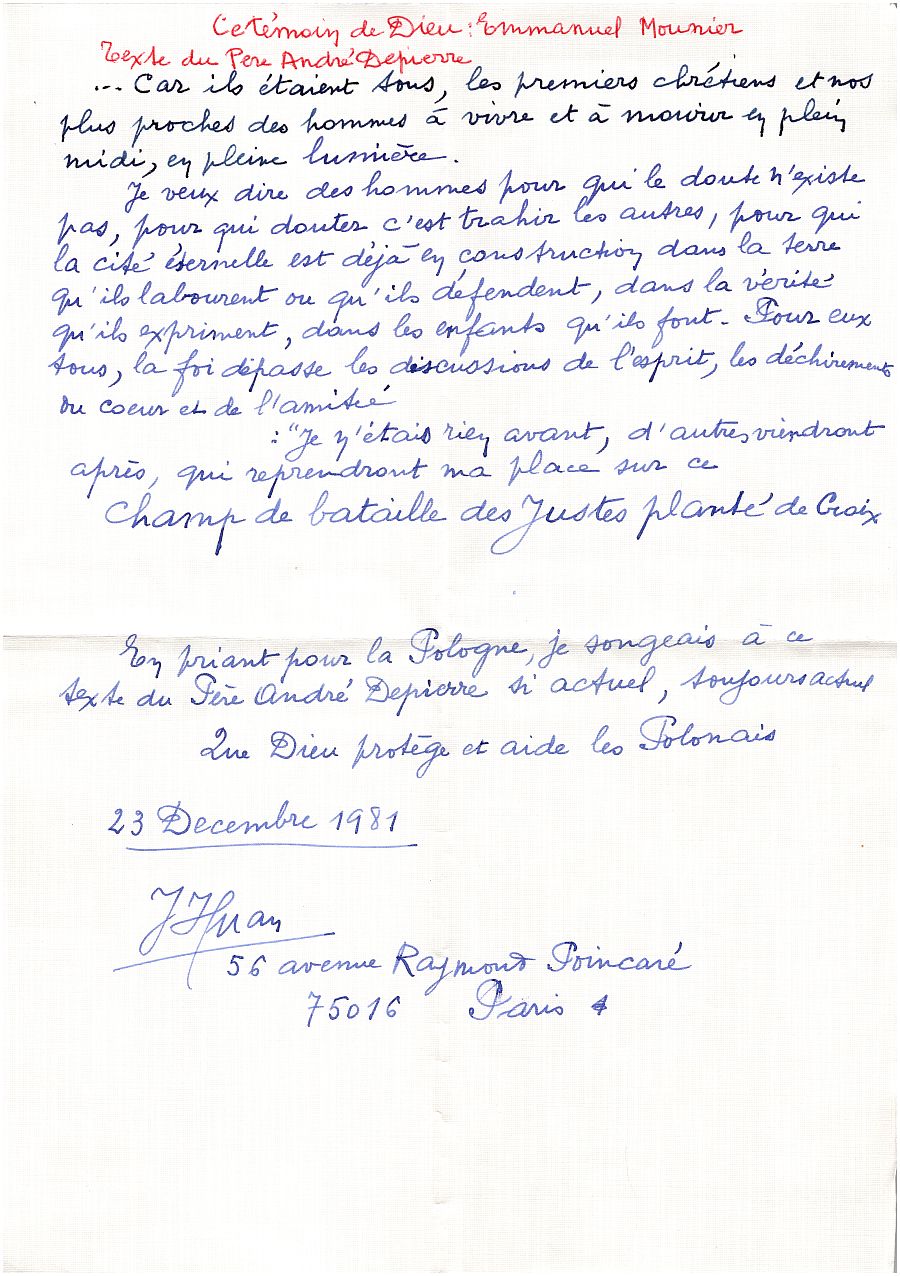 Ce témoin de Dieu : Emmanuel Mounier
Texte du Père André Depierre
... Car ils étaient tous, les premiers chrétiens et nos
plus proches des hommes à vivre et à mourir en plein
midi, en pleine lumière.
Je veux dire des hommes pour qui le doute n'existe
pas, pour qui douter c'est trahir les autres, pour qui
la cité éternelle est déjà en construction dans la terre
qu'ils labourent ou qu'ils défendent, dans la vérité
qu'ils expriment, dans les enfants qu'ils font - Pour eux
tous, la foi dépasse les discussions de l'esprit, les déchirements
du coeur et de l'amitié
: "Je n'étais rien avant, d'autres viendront
après, qui reprendront ma place sur ce
Champ de bataille des Justes planté de Croix
En priant pour la Pologne, je songeais à ce
texte du Père André Depierre si actuel, toujours actuel
Que Dieu protège et aide les Polonais
23 Decembre 1981
56 avenue Raymond Poincaré
75016 Paris